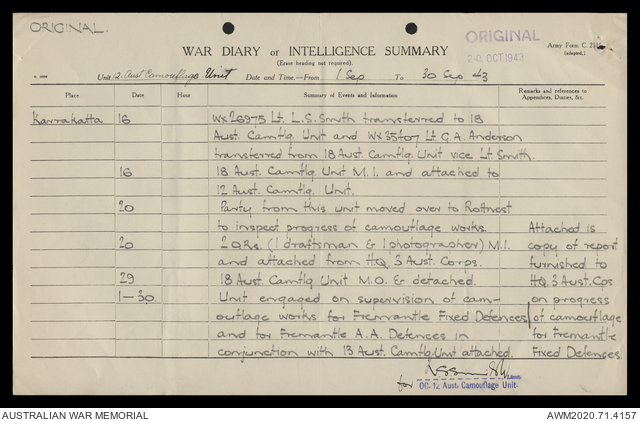 ORIGINAL.
ORIGINAL
20 OCT 1943
WAR DIARY or INTELLIGENCE SUMMARY
(Erase heading not required).
Army Form C.
(adapted.)
Unit 12 Aust Camouflage Unit Date and Time—From 1 Sep To 30 Sep 43
Place Date Hour Summary of Events and Information Remarks and references to Appendices, Diaries, &c.
Karrakatta 16 WX26975 Lt. L.S. Smith transferred to 18
Aust. Camflg. Unit and WX35407 Lt G.A. Anderson
transferred from 18 Aust. Camflg. Unit vice Lt. Smith.
16 18 Aust. Camflg Unit M.I. and attached to
12 Aust. Camflg. Unit.
20 Party from this unit moved over to Rottnest
to inspect progress of camouflage works. Attached is
20 2 ORs. (1 draftsman & 1 photographer) M.I. copy of report
and attached from H.Q. 3 Aust. Corps. furnished to
29 18 Aust. Camflg Unit M.O. & detached. H.Q. 3 Aust. Cps.
1-30 Unit engaged on supervision of cam- on progress
ouflage works for Fremantle Fixed Defences of camouflage
and for Fremantle A.A. Defences in for Fremantle
conjunction with 13 Aust. Camflg Unit attached. Fixed Defences
for
OC. 12 Aust. Camouflage Unit.
AUSTRALIAN WAR MEMORIAL
AWM2020.71.4157